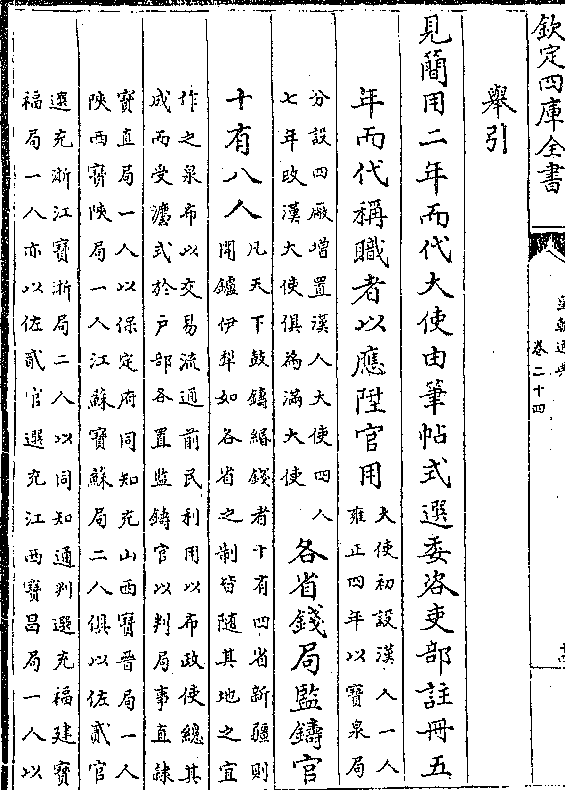 欽定四庫全書
皇朝通典
卷二十四
舉引
見簡用二年而代大使由筆帖式選委咨吏部註冊五
年而代稱職者以應陞官用
大使初設漢人一人
雍正四年以寶泉局
分設四厰增置漢人大使四人
七年改漢大使俱為滿大使
各省錢局監鑄官
十有八人
凡天下鼓鑄緡錢者十有四省新疆則
開鑪伊犂如各省之制皆随其地之宜
作之泉布以交易流通前民利用以布政使總其
成而受灋式於戶部各置監鑄官以判局事直𨽻
寶直局一人以保定府同知充山西寶晉局一人
陜西寶陜局一人江蘇寶蘇局二人俱以佐貳官
選充浙江寶浙局二人以同知通判選充福建寶
福局一人亦以佐貳官選充江西寶昌局一人以